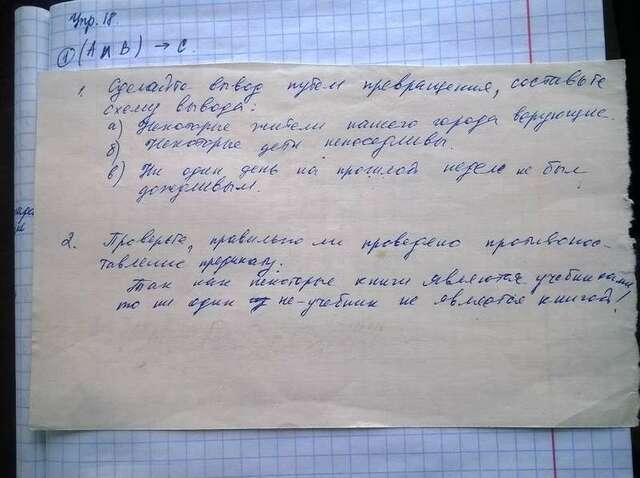 Упр. 18.
① (А и В) → С.
1. Сделайте вывод путем превращения, составьте
схему вывода:
а) Некоторые жители нашего города верующие.
б) Некоторые дети непоседливы.
в) Ни один день на прошлой неделе не был
дождливым.
2. Проверьте, правильно ли проведено противопос-
тавление предикату.
Так как некоторые книги являются учебниками,
то ни один не-учебник не является книгой!